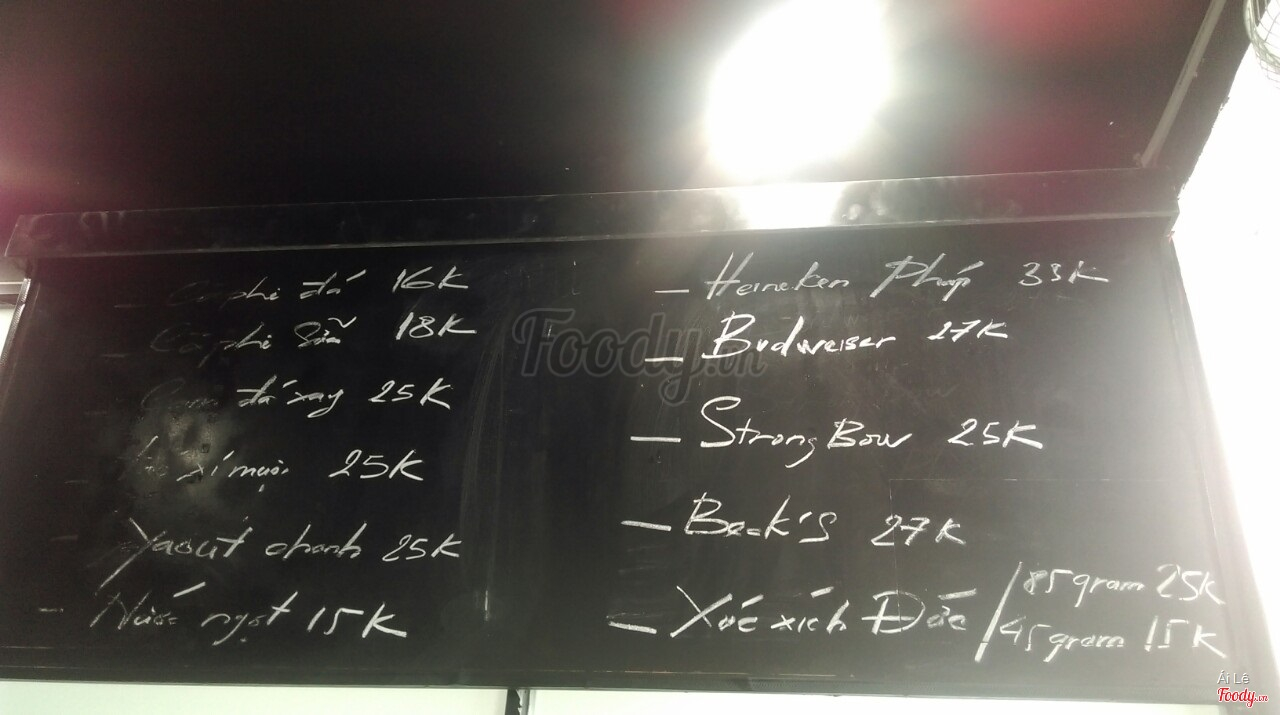 Càphi đá 16K
Càphi Sữa 18K
đá xay 25K
xí muội 25K
Yaout chanh 25K
- Nước ngọt 15K
- Heineken Pháp 33K
- Budweiser 27K
- StrongBow 25K
- Beck's 27K
- Xúc xích Đức / 85 gram 25K
45 gram 15K
Foody.vn
Ái Lê
Foody.vn